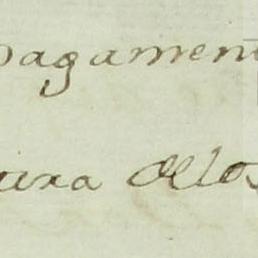 pagamen
ara delos